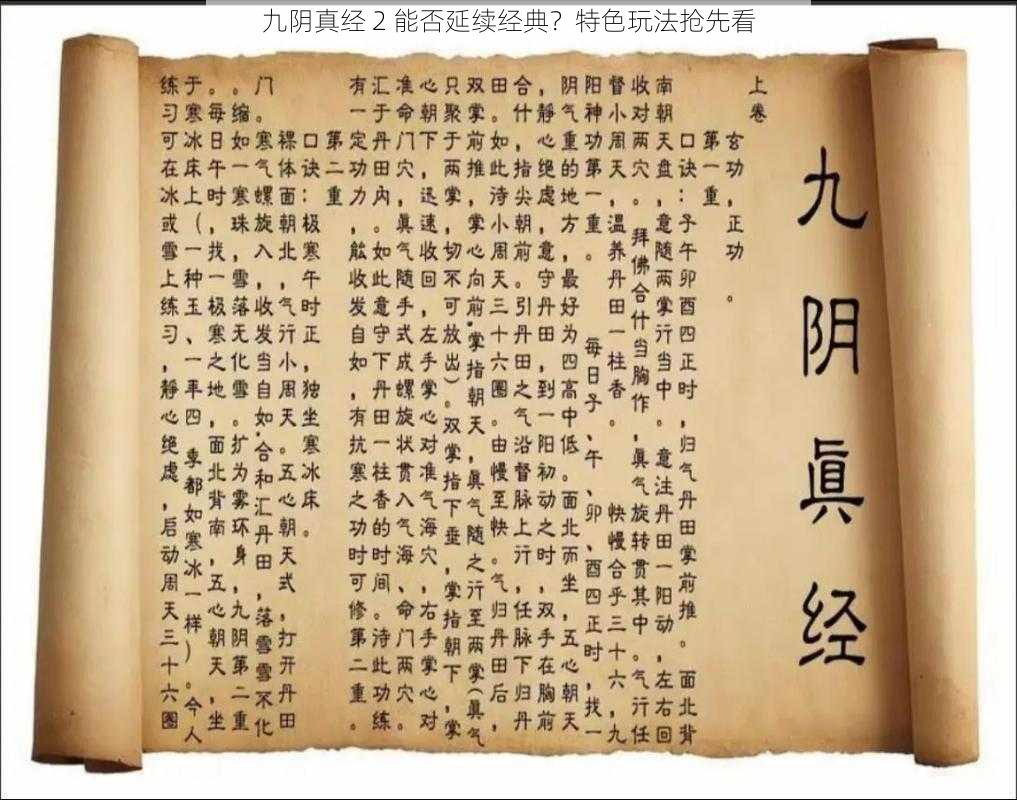 九阴真经 2 能否延续经典？特色玩法抢先看
九阴眞经
上卷
玄功，正功。
第一重，
口诀：子午卯酉四正时，归气丹田掌前推。面北背
南朝天盘，意随两掌行当中。意注丹田一阳动，左右回
收对两穴。，拜佛合什当胸作，眞气旋转贯其中。气行任
督小周天，温养丹田一柱香。快慢合乎三十六，九
阳神功第一重。每日子、午、卯、酉四正时，找一
阴气重的地方，最好为四高中低。面北而坐，五心朝天
合，静心绝虑，意守丹田，到一阳初动之时，双手在胸前
合什，指尖朝前。引丹田之气沿督脉上行，任脉下归丹
田。如此，待小周天三十六圈。由慢至快。气归丹田后，
双掌前推，掌心向前，掌指朝天，眞气随之行至两掌（眞气
只聚于两掌，切不可放出）。双掌指下垂，掌指朝下，掌
心朝下，迅速收回，左手掌心对准气海穴，右手掌心对
准命门穴，眞气随手式成螺旋状贯入气海、命门两穴。
汇于丹田内，如此意守下丹田一柱香的时间。待此功练
有一定功力。能收发自如，有抗寒之功时可修第二重。
第二重
口诀：极寒午时正，独坐寒冰床。
裸体面朝北，气行小周天。五心朝天式，打开丹田
门。寒气螺旋入，收发当自如.合和汇丹田，落雪雪不化
。缩如一寒珠，雪落无化雪。扩为雾环身，九阴第二重
。每日午时，找一极寒之地，面北背南，五心朝天，坐
于寒冰床上（一种玉、一年四季都如寒冰一样）。今人
练习可在冰或雪上练习，静心绝虑，启动周天三十六圈